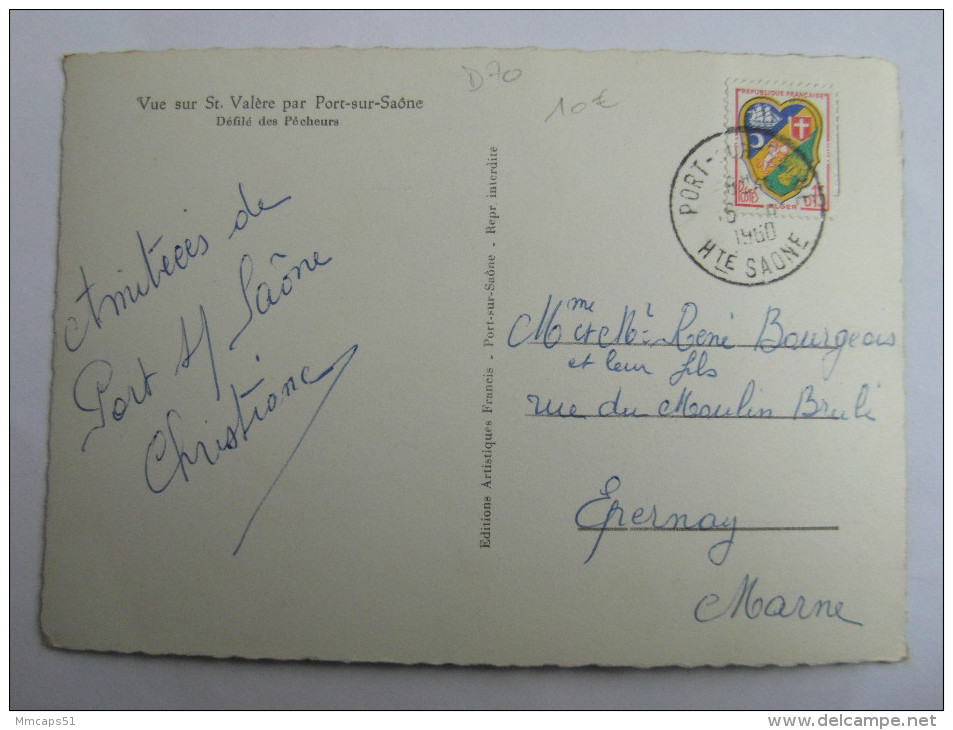 D70
10€
Vue sur St. Valère par Port-sur-Saône
Défilé des Pêcheurs
REPUBLIQUE FRANÇAISE
POSTES
ALGER
0,15
PORT-SUR
5
1960
HTE SAONE
Amitiées de
Port s/ Saône
Christiane
Editions Artistiques Francis - Port-sur-Saône - Repr. interdite
Mme et Mr René Bourgeois
et leur fils
rue du Moulin Brulé
Épernay
Marne
Mmcaps51
http://www.delcampe.net